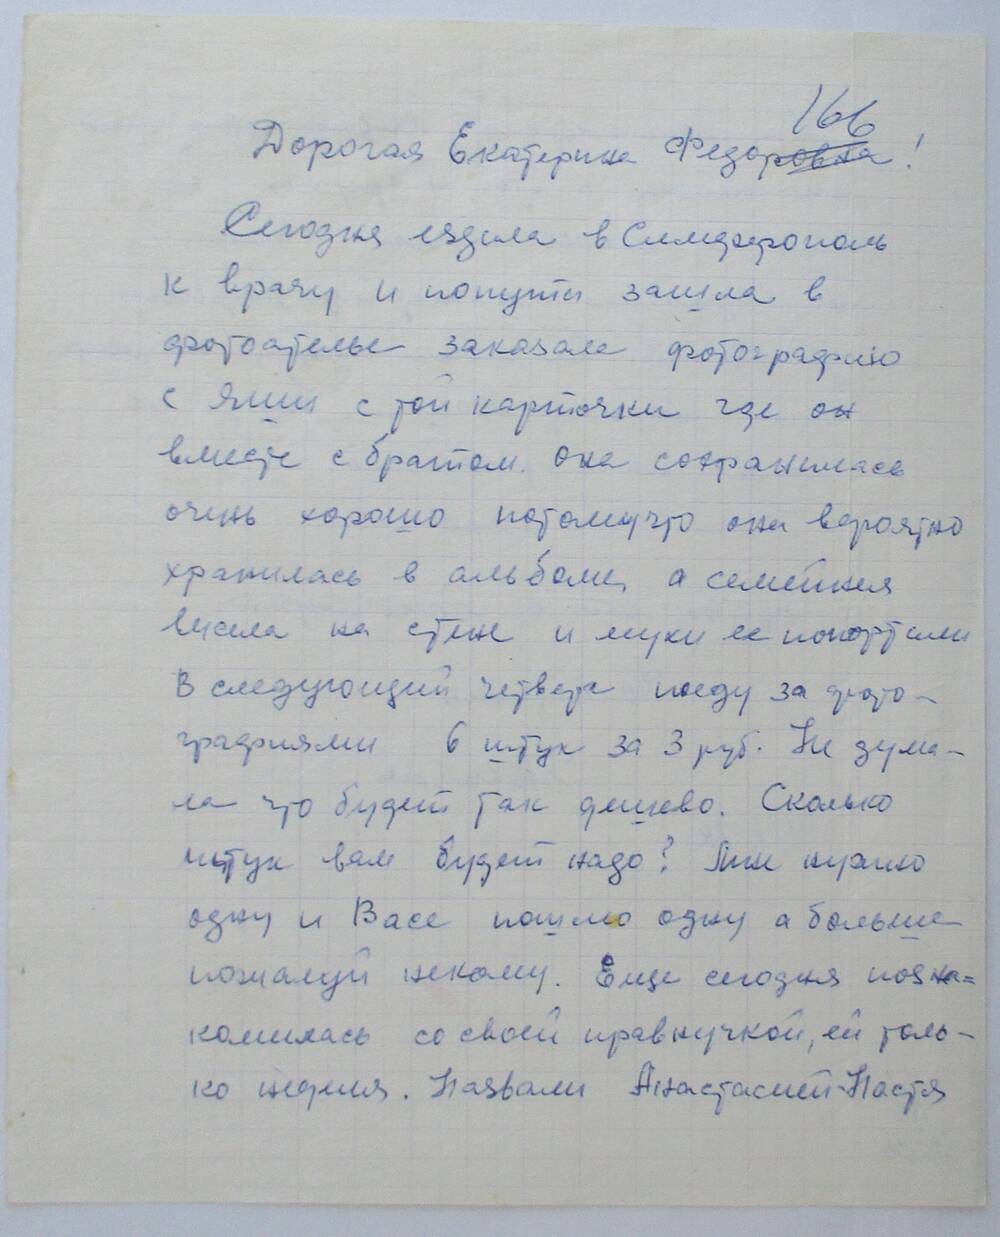 166
Дорогая Екатерина Федоровна!
Сегодня ездила в Симферополь
к врачу и попути зашла в
фотоателье заказала фотографию
с Яши с той карточки где он
вместе с братом. она сохранилась
очень хорошо потомучто она вероятно
хранилась в альбоме, а семейная
висела на стене и мухи ее попортили
В следующий четверг поеду за фото-
графиями 6 штук за 3 руб. Не дума-
ла что будет так дешево. Сколько
штук вам будет надо? Мне нужно
одну и Васе пошлю одну а больше
пожалуй некому. Еще сегодня позна=
комилась со своей правнучкой, ей толь-
ко неделя. Назвали Анастасией-Настя